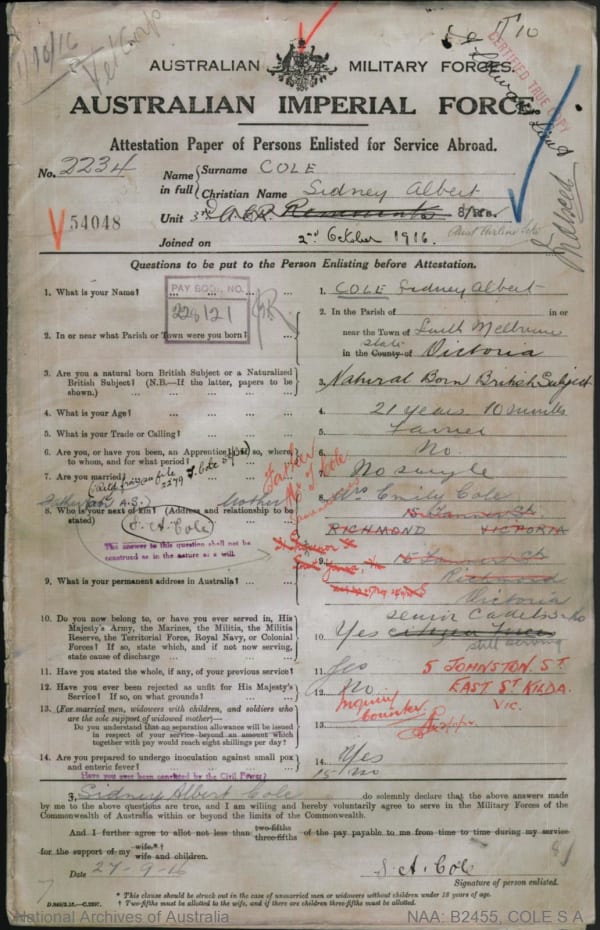 1/10/16
Vet Corps
CERTIFIED TRUE COPY
AUSTRALIAN MILITARY FORCES.
AUSTRALIAN IMPERIAL FORCE.
Attestation Paper of Persons Enlisted for Service Abroad.
No. 2234
Name in full { Surname COLE
Christian Name Sidney Albert
54048
Unit Remounts
Joined on 2nd October 1916.
Questions to be put to the Person Enlisting before Attestation.
1. What is your Name? ... ... ... 1. COLE Sidney Albert
PAY BOOK NO.
2. In or near what Parish or Town were you born? 2. In the Parish of in or
near the Town of South Melbourne
State
in the County of Victoria
3. Are you a natural born British Subject or a Naturalized
British Subject? (N.B.—If the latter, papers to be
shown.) ... ... 3. Natural Born British Subject
4. What is your Age? ... ... 4. 21 years 10 months
5. What is your Trade or Calling? ... 5. Farrier
6. Are you, or have you been, an Apprentice? If so, where,
to whom, and for what period? 6. No.
7. Are you married? 7. No single
8. Who is your next of kin? (Address and relationship to be
stated) Mother 8. Mrs Emily Cole
15 Tanner St.
RICHMOND VICTORIA
S. A. Cole
Father
The answer to this question shall not be
construed as in the nature of a will.
9. What is your permanent address in Australia? ... 9. 15 Tanner St
Richmond
Victoria
10. Do you now belong to, or have you ever served in, His
Majesty's Army, the Marines, the Militia, the Militia
Reserve, the Territorial Force, Royal Navy, or Colonial
Forces? If so, state which, and if not now serving,
state cause of discharge ... 10. Yes Citizen Forces
Senior Cadets
still serving
11. Have you stated the whole, if any, of your previous service? 11. Yes
5 JOHNSTON ST
EAST ST KILDA.
VIC.
12. Have you ever been rejected as unfit for His Majesty's
Service? If so, on what grounds? ... 12. No
13. (For married men, widowers with children, and soldiers who
are the sole support of widowed mother)—
Do you understand that no separation allowance will be issued
in respect of your service beyond an amount which
together with pay would reach eight shillings per day? 13.
14. Are you prepared to undergo inoculation against small pox
and enteric fever? ... 14. Yes
Have you ever been convicted by the Civil Power? 15 No
I, Sidney Albert Cole do solemnly declare that the above answers made
by me to the above questions are true, and I am willing and hereby voluntarily agree to serve in the Military Forces of the
Commonwealth of Australia within or beyond the limits of the Commonwealth.
And I further agree to allot not less than two-fifths three-fifths of the pay payable to me from time to time during my service
for the support of my wife.*† wife and children.
Date 27-9-16
S. A. Cole
Signature of person enlisted.
* This clause should be struck out in the case of unmarried men or widowers without children under 18 years of age.
† Two-fifths must be allotted to the wife, and if there are children three-fifths must be allotted.
National Archives of Australia
NAA: B2455, COLE S A